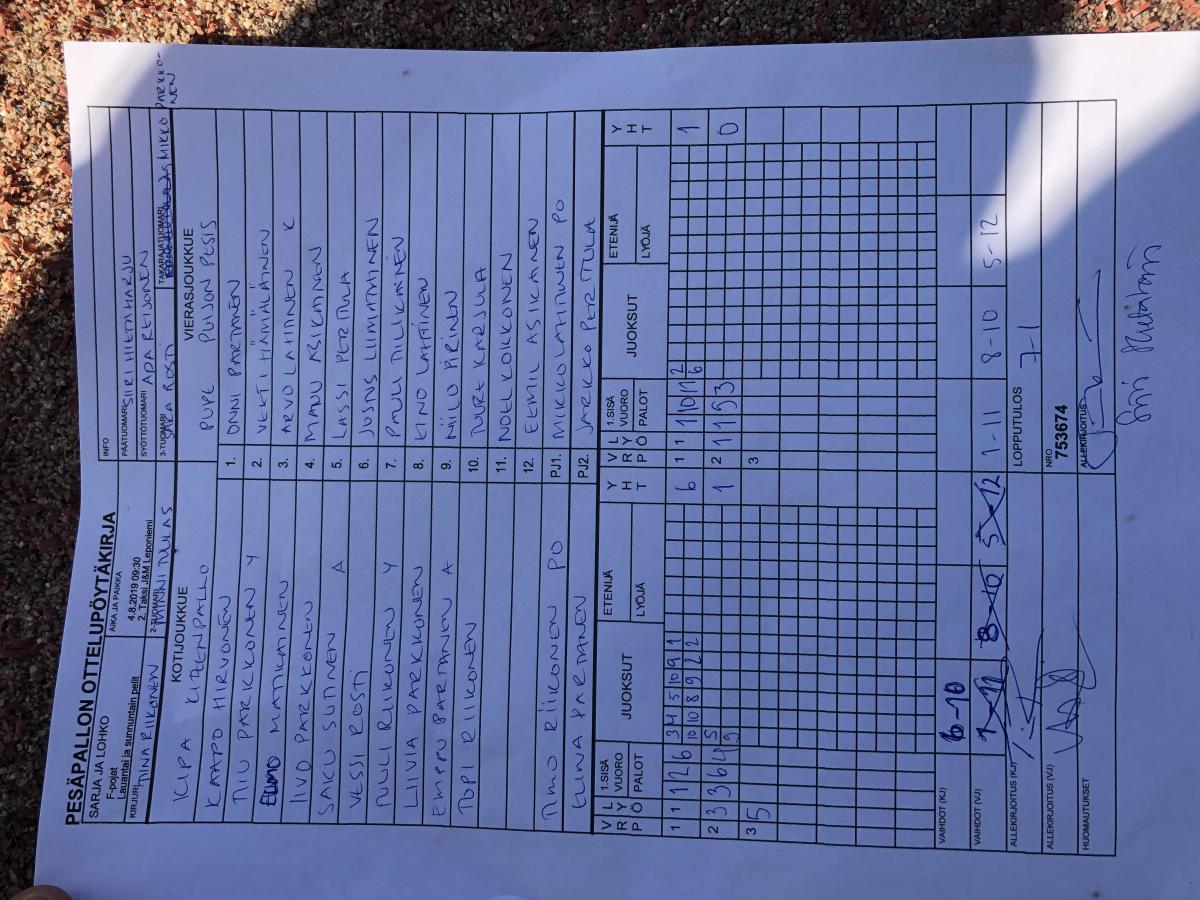 PESÄPALLON OTTELUPÖYTÄKIRJA
SARJA JA LOHKO
F-pojat
Lauantai ja sunnuntain pelit
AIKA JA PAIKKA
4.8.2019 09:30
2. Taksi J&M Leponiemi
INFO
PÄÄTUOMARI SIIRI HIETAHARJU
SYÖTTÖTUOMARI ADA REIJONEN
KIRJURI TIINA RIIKONEN
2-TUOMARI MINNI TUULAS
3-TUOMARI SARA ROSTI
TAKARAJATUOMARI MIKKO PARKKO-
NEN
KOTIJOUKKUE
KIPA KITEENPALLO
VIERASJOUKKUE
PUPE PUIJON PESIS
KAAPO HIRVONEN
1. ONNI PARTANEN
TIU PARKKONEN Y
2. VEETI HÄMÄLÄINEN
MATIKAINEN
3. ARVO LAHTINEN K
IIVO PARKKONEN
4. MANU ASIKAINEN
SAKU SUTINEN A
5. LASSI PERTTULA
VESSI ROSTI
6. LIIMATAINEN
TUULI RIIKONEN Y
7. PAULI TULIKAINEN
LIIVIA PARKKONEN
8. EINO LAHTINEN
EMPPU PARTANEN A
9. NIILO PIRINEN
TOPI RIIKONEN
10. TUURE KARJULA
11. NOEL KOIKKONEN
12. EEMIL ASIKAINEN
TIMO RIIKONEN PO
PJ1. MIKKO LAHTINEN PO
ELINA PARTANEN
PJ2. JARKKO PERTTULA
V R P
L Y Ö
1.SISÄ
VUORO
PALOT
JUOKSUT
ETENIJÄ
LYÖJÄ
Y H T
V R P
L Y Ö
1.SISÄ
VUORO
PALOT
JUOKSUT
ETENIJÄ
LYÖJÄ
Y H T
1 1 12 6 3 4 5 10 9 1
10 10 8 9 2 2
6
1 1 1 10 11 2
6
1
2 3 3 6 4 5
9
1
2 1 1 1 5 3
0
3 5
3
VAIHDOT (KJ)
6-10
VAIHDOT (VJ)
1-11 8-10 5-12
1-11 8-10 5-12
ALLEKIRJOITUS (KJ)
LOPPUTULOS
7-1
ALLEKIRJOITUS (VJ)
NRO
753674
HUOMAUTUKSET
ALLEKIRJOITUS